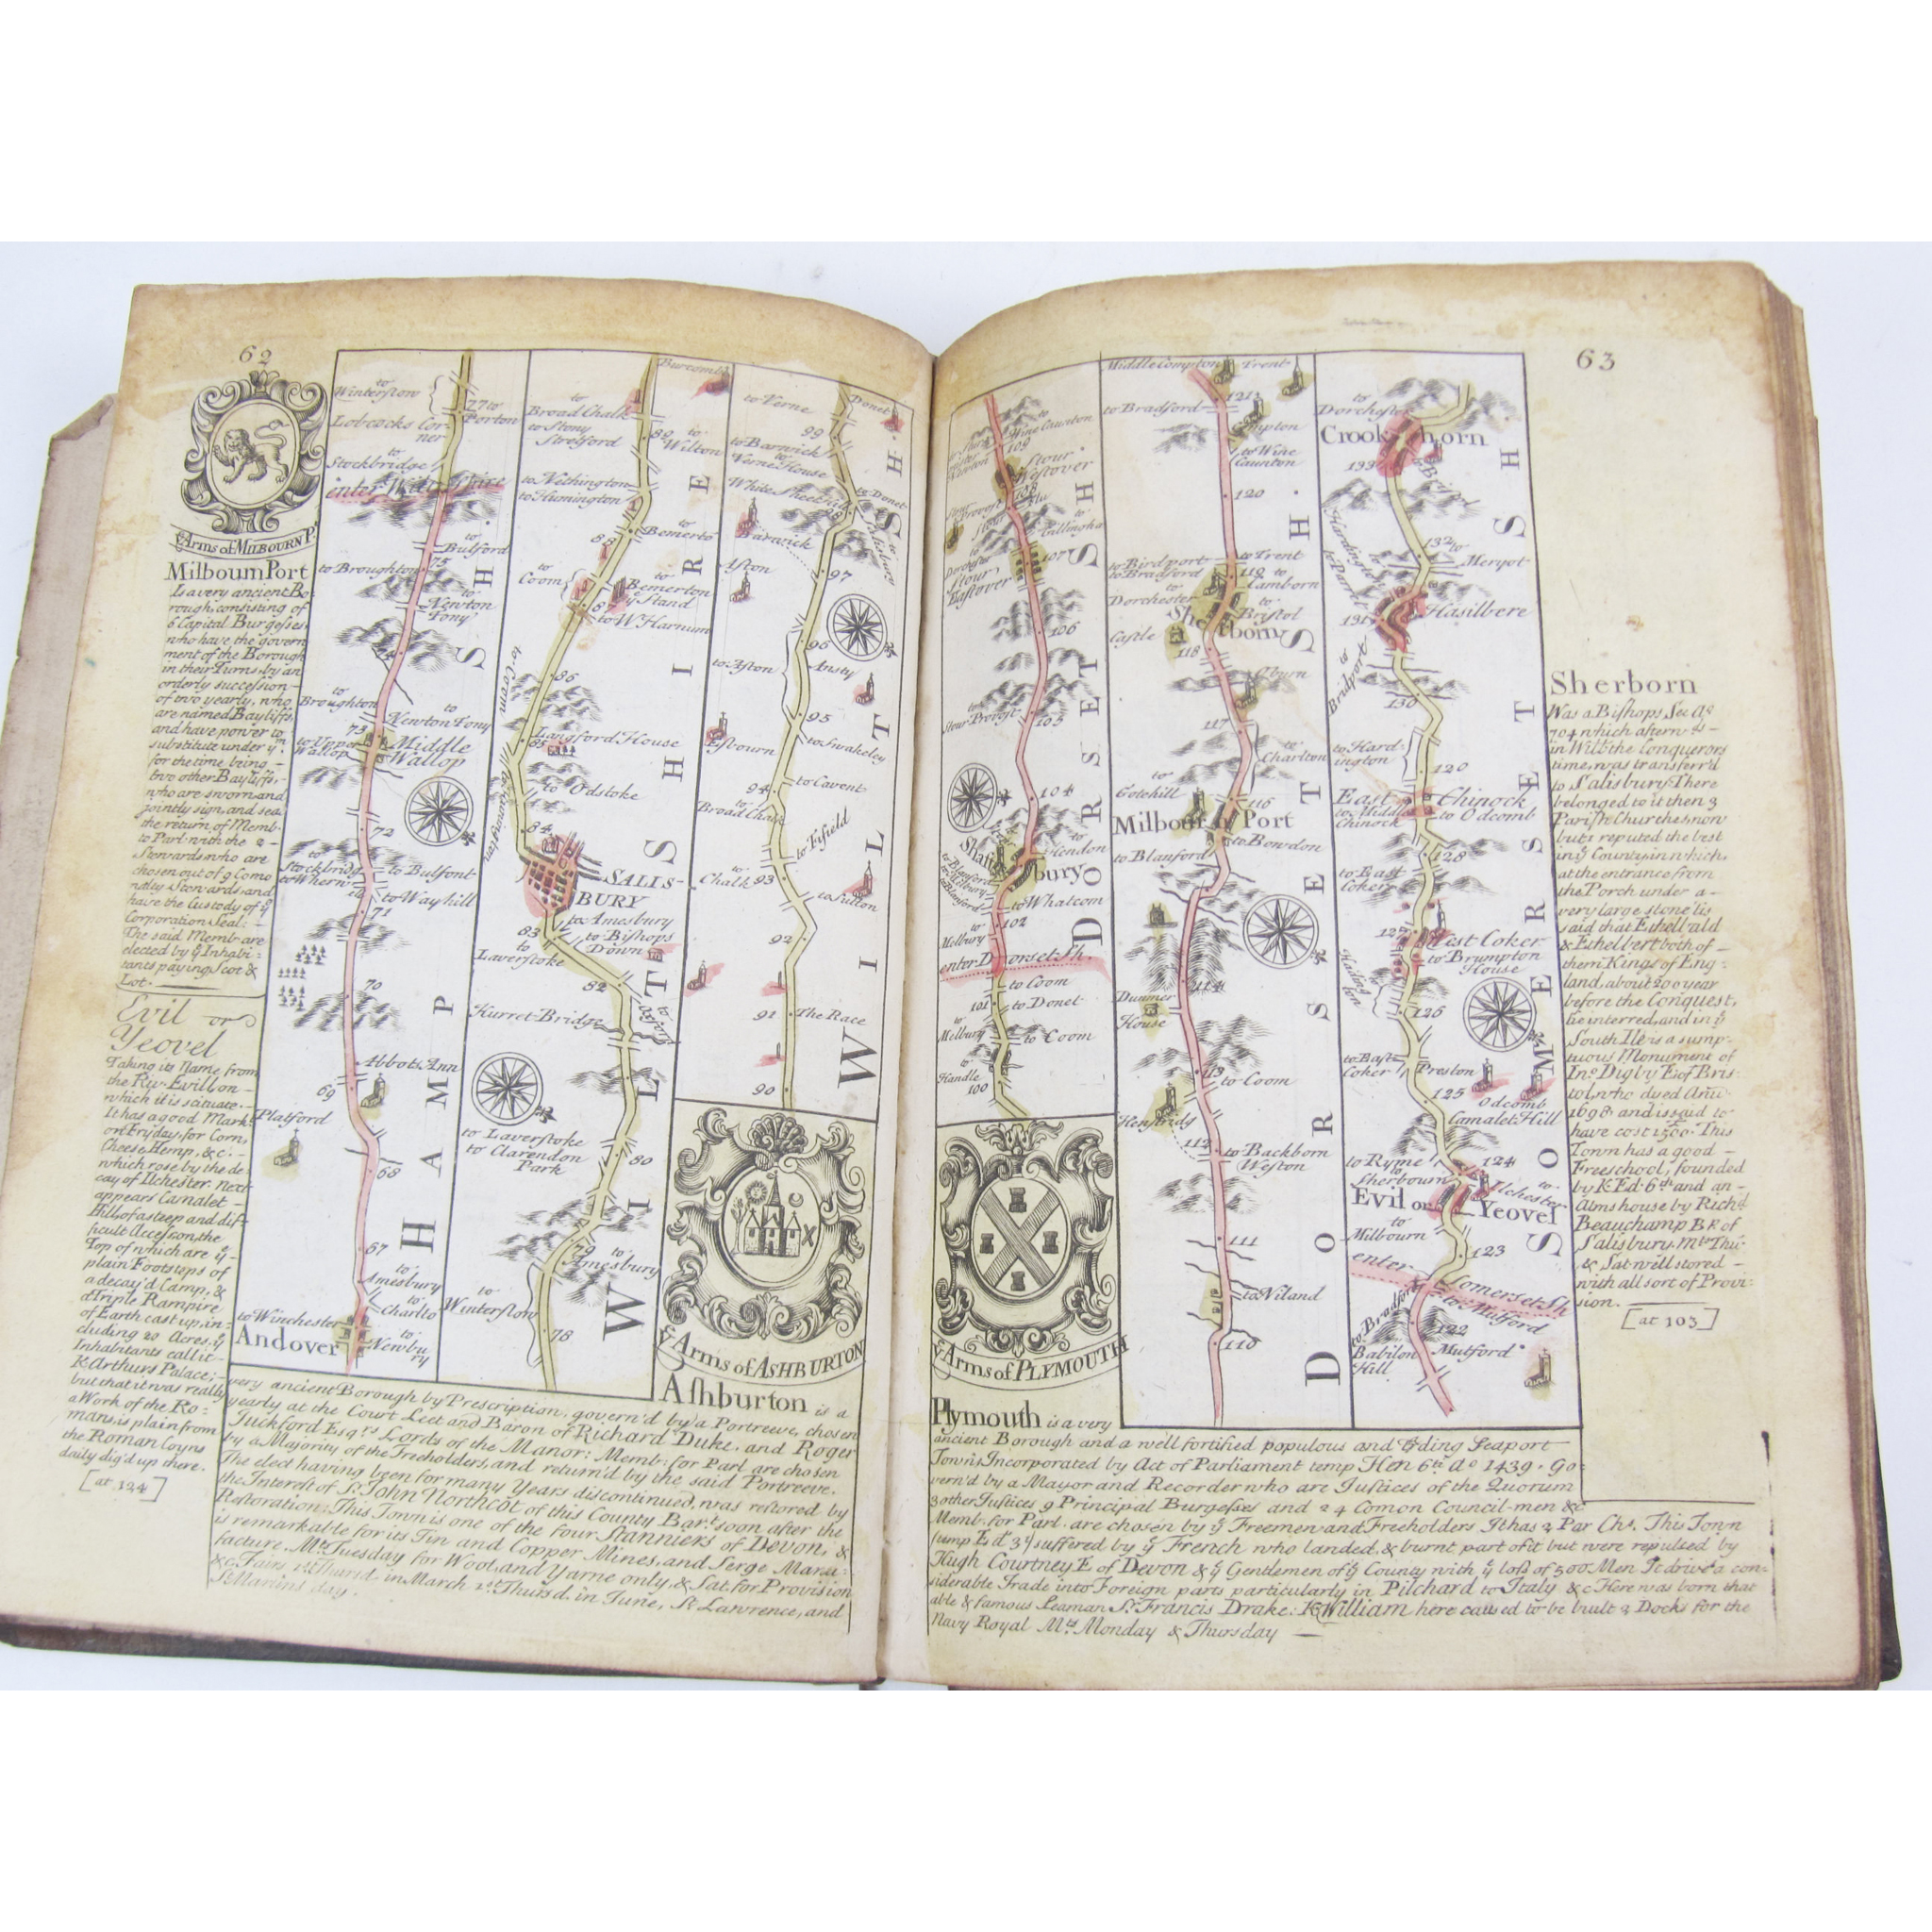 62
Arms of MILBOURN P.t
Milbourn Port
Is a very ancient Bo-
rough, consisting of
6 Capital Burgesses
who have the govern
ment of the Borough
in their Turns, by an
orderly succession
of two yearly, who
are named Bayliffs,
and have power to
substitute under ym
for the time being
two other Bayliffs,
who are sworn, and
jointly sign, and seal
the return of Memb.
to Parl. with the 2
Stewards who are
chosen out of 9 Com̄o
nalty Stewards, and
have the Custody of ye
Corporation Seal:
The said Memb. are
elected by ye Inhabi-
tants paying Scot &
Lot.
Evil or
Yeovel
Taking its Name from
the Riv. Evill, on
which it is scituate.
It has a good Mark.t
on Fryday, for Corn,
Cheese, Hemp, &c.
which rose by the de
cay of Ilchester. next
appears Camalet
Hill, of a steep and dif-
ficult Accession, the
Top of which are ye
plain Footsteps of
a decay'd Camp, &
a Triple Rampire
of Earth cast up, in-
cluding 20 Acres, ye
Inhabitants call it
K. Arthurs Palace;
but that it was really
a Work of the Ro=
mans, is plain from
the Roman Coyns
daily dig'd up there.
[at 124]
to Winterslow
77 to Porton
Lobcocks Cor-
ner
to Stockbridge
enter Wiltshire
to Bulford
75
to Broughton
to Newton Tony
74
to Broughton
Newton Tony
73
to Upper Wallop
Middle Wallop
72
to Stockbridg
to Whern
to Bulfont
to Way hill
71
70
Abbots Ann
69
Platford
68
67
to Amesbury
to Charlto
to Winchester
Andover
to Newbury
HAMP SH.
to Broad Chalk
to Stony Stretford
89
to Wilton
Burcomb
to Nethington
to Humington
to Bemerto
88
to Coom
to Bemerton
ye Stand
87
to W Harnum
to Coom
86
Langford House
85
to Odstoke
84
SALIS-
BURY
to Amesbury
to Bishops Down
83
to Laverstoke
82
Hurret-Bridge
to Laverstoke
to Clarendon Park
80
79
to Amesbury
to Winterslow
78
WILTSHIRE
to Verne
Donet
99
to Barwick
to Verne House
White Sheet Hill
to Donet
98
to Salisbury
Barwick
Aston
97
96
to Aston
Ansty
95
Esbourn
to Swakeley
94
to Cavent
to Broad Chalk
to Fifield
Chalk 93
to Sutton
92
91
The Race
90
WILTSH.
ye Arms of ASHBURTON
Ashburton is a
very ancient Borough by Prescription, govern'd by a Portreeve, chosen
yearly at the Court Leet and Baron of Richard Duke, and Roger
Tuckford Esqrs Lords of the Manor: Memb: for Parl. are chosen
by a Majority of the Freeholders, and return'd by the said Portreeve.
The elect having been for many Years discontinued, was restored by
the Interest of Sr. John Northcot of this County Bar.t soon after the
Restoration: This Town is one of the four Stanniers of Devon, &
is remarkable for its Tin and Copper Mines, and Serge Manu=
facture. Mt. Tuesday for Wool, and Yarne only, & Sat. for Provision
&c. Fairs 1st. Thursd. in March 1st. Thursd. in June, St. Lawrence, and
St. Martins day.
63
to Wine Caunton
109
Stour Westover
108
to Gillingha
107
to Dorchester
Stour Eastover
106
Stour Provost
105
104
Shafts bury
to Hendon
to Whatcom
102
to Milbury
enter Dorset Sh.
to Coom
101
to Donet
to Milbury
to Coom
to Handle
100
DORSET SH.
ye Arms of PLYMOUTH
Middle Compton
Trent
to Bradford
121
Compton
to Wine Caunton
120
to Birdport
to Bradford
to Trent
119
to Tamborn
to Dorchester
to Bristol
Sherborn
Castle
118
Oburn
117
to Charlton
to Gotehill
116
Milbourn Port
to Bowdon
to Blanford
114
Dunmer House
113
to Coom
Henstridg
112
to Backborn
Weston
111
to Niland
110
DORSET SH.
to Dorchester
Crookhorn
133
to Bristol
132
to Meryot
to Hardington
to Parret
Hasilbere
131
to Bridport
130
to Hardington
120
East Chinock
to Middle Chinock
to Odcomb
128
to East Coker
127
West Coker
to Brumpton House
126
to East Coker
Preston
125
Odcomb
Camalet Hill
to Ryme
124
to Sherbourn
to Ilchester
Evil or Yeovel
to Milbourn
123
enter Somerset Sh
to Bradford
to Mutford
122
Babilon Hill
Mutford
SOMERSET SH.
Sherborn
Was a Bishops See Ao
704 which afterwds
in Will: the Conquerors
time, was transferr'd
to Salisbury There
belonged to it then 3
Parish Churches, now
but 1 reputed the best
in ye County, in which,
at the entrance from
the Porch under a
very large stone 'tis
said that Ethelbald
& Ethelbert both of
them Kings of Eng-
land, about 200 year
before the Conquest,
lie interred, and in ye
South Ile is a sump-
tuous Monument of
Ino. Digby E. of Bris
tol, who dyed Año
1698 and is said to
have cost 1500. This
Town has a good
Freeschool, founded
by K. Ed. 6th and an
Almshouse by Richd
Beauchamp Bp. of
Salisbury. Mts Thu.
& Sat. well stored
with all sort of Provi:
sion.
[at 103]
Plymouth is a very
ancient Borough and a well fortified populous and trading Seaport
Town Incorporated by Act of Parliament temp Hen 6th Ao 1439. Go:
vern'd by a Mayor and Recorder who are Justices of the Quorum
3 other Justices 9 Principal Burgesses and 24 Comon Council-men &c
Memb. for Parl. are chosen by ye Freemen and Freeholders It has 2 Par Chs. This Town
temp Ed 3d suffered by ye French who landed, & burnt part of it but were repulsed by
Hugh Courtney E of Devon & ye Gentlemen of ye County with ye loss of 500 Men It drives a con-
siderable Trade into Foreign parts particularly in Pilchard to Italy &c Here was born that
able & famous Seaman Sr. Francis Drake: K William here caused to be built 2 Docks for the
Navy Royal Mts. Monday & Thursday